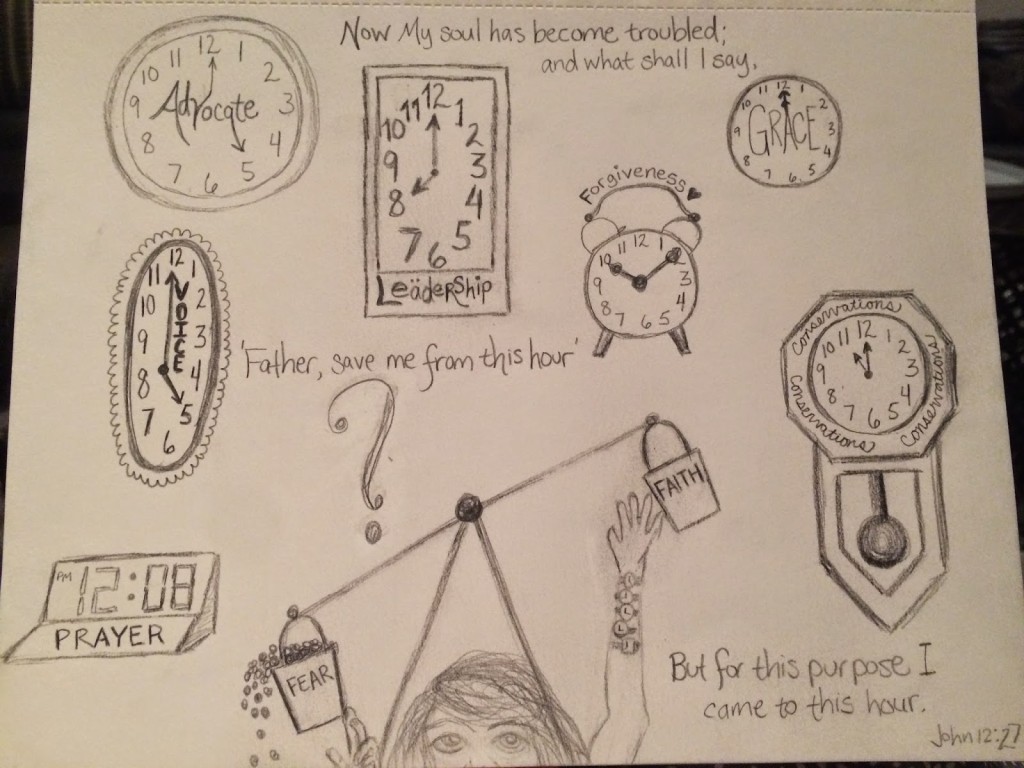 Now My soul has become troubled;
and what shall I say,
12
1
2
3
4
5
6
7
8
9
10
11
Advocate
12
1
2
3
4
5
6
7
8
9
10
11
Leadership
12
1
2
3
4
5
6
7
8
9
10
11
GRACE
Forgiveness
12
1
3
4
5
6
7
8
9
10
11
12
1
2
3
4
5
6
7
8
9
10
11
VOICE
'Father, save me from this hour'
?
Conservations
Conservations
Conservations
Conservations
12
1
2
3
4
5
6
7
8
9
10
11
FAITH
PM 12:08
PRAYER
FEAR
But for this purpose I
came to this hour.
John 12:27